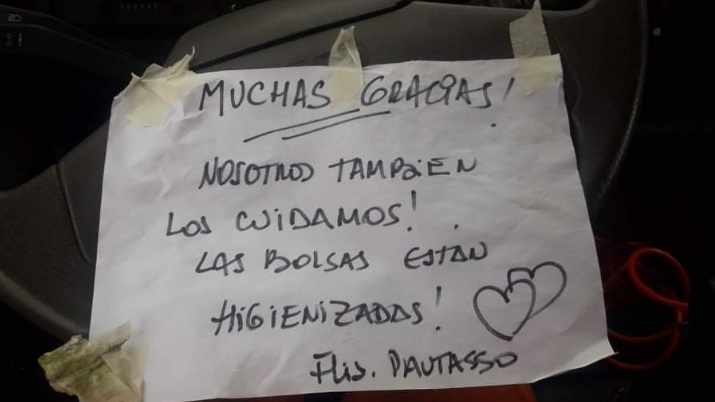 MUCHAS GRACIAS!
NOSOTROS TAMBIEN
LOS CUIDAMOS!
LAS BOLSAS ESTAN
HIGIENIZADAS!
Flis. PAUTASSO